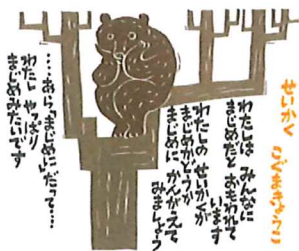 せいかく　こぐまきょうこ
わたしは　みんなに
まじめだと　おもわれて
います
わたしの　せいかくが
まじめかどうか
まじめに　かんがえて
みましょう
…あら、“まじめに”だって…
わたし　やっぱり
まじめみたいです